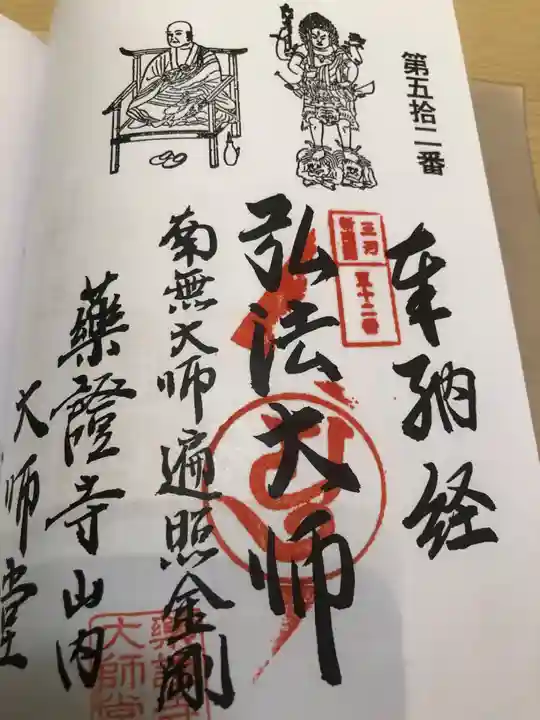 第五拾二番
奉納経
三河
新四国
五十二番
弘法大師
南無大師遍照金剛
薬證寺山内
大師堂
大師堂